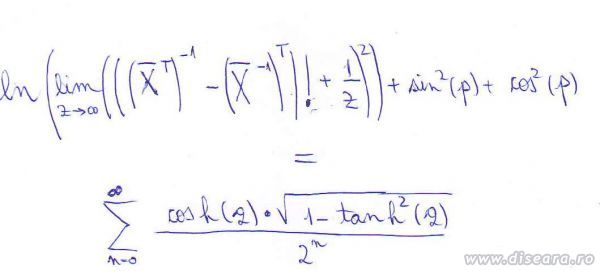 ln(lim z→∞ ((((X̄ᵀ)⁻¹ − (X̄⁻¹)ᵀ)! + 1/z)²)) + sin²(p) + cos²(p)
=
∑ n=0 ∞ cosh(q)·√(1−tanh²(q)) / 2ⁿ
www.diseara.ro